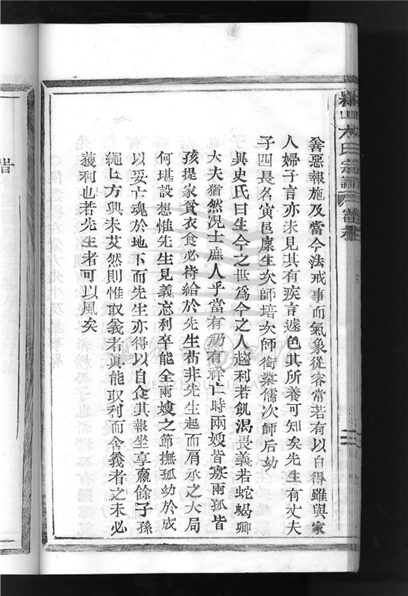 善惡報施及當今法戒事而氣象從容常若有以自得雖與家
人婦子言亦未見其有疾言遽色其所養可知矣先生有丈夫
子四長名寅邑廩生次師培次師衡業儒次師后幼
異史氏曰生今之世爲今之人趨利若飢渴畏義若蛇蝎卿
大夫猶然况士庶人乎當有初有祥亡時兩嫂皆寡兩孤皆
孩提家貧衣食必待給於先生苟非先生起而肩承之大局
何堪設想惟先生見義忘利卒能全兩嫂之節撫孤幼於成
以妥亡魂於地下而先生亦得以自食其報坐享麄餘子孫
繩上方興未艾然則惟取義者眞能取利而舍義者之未必
獲利也若先生者可以風矣
氏宗譜